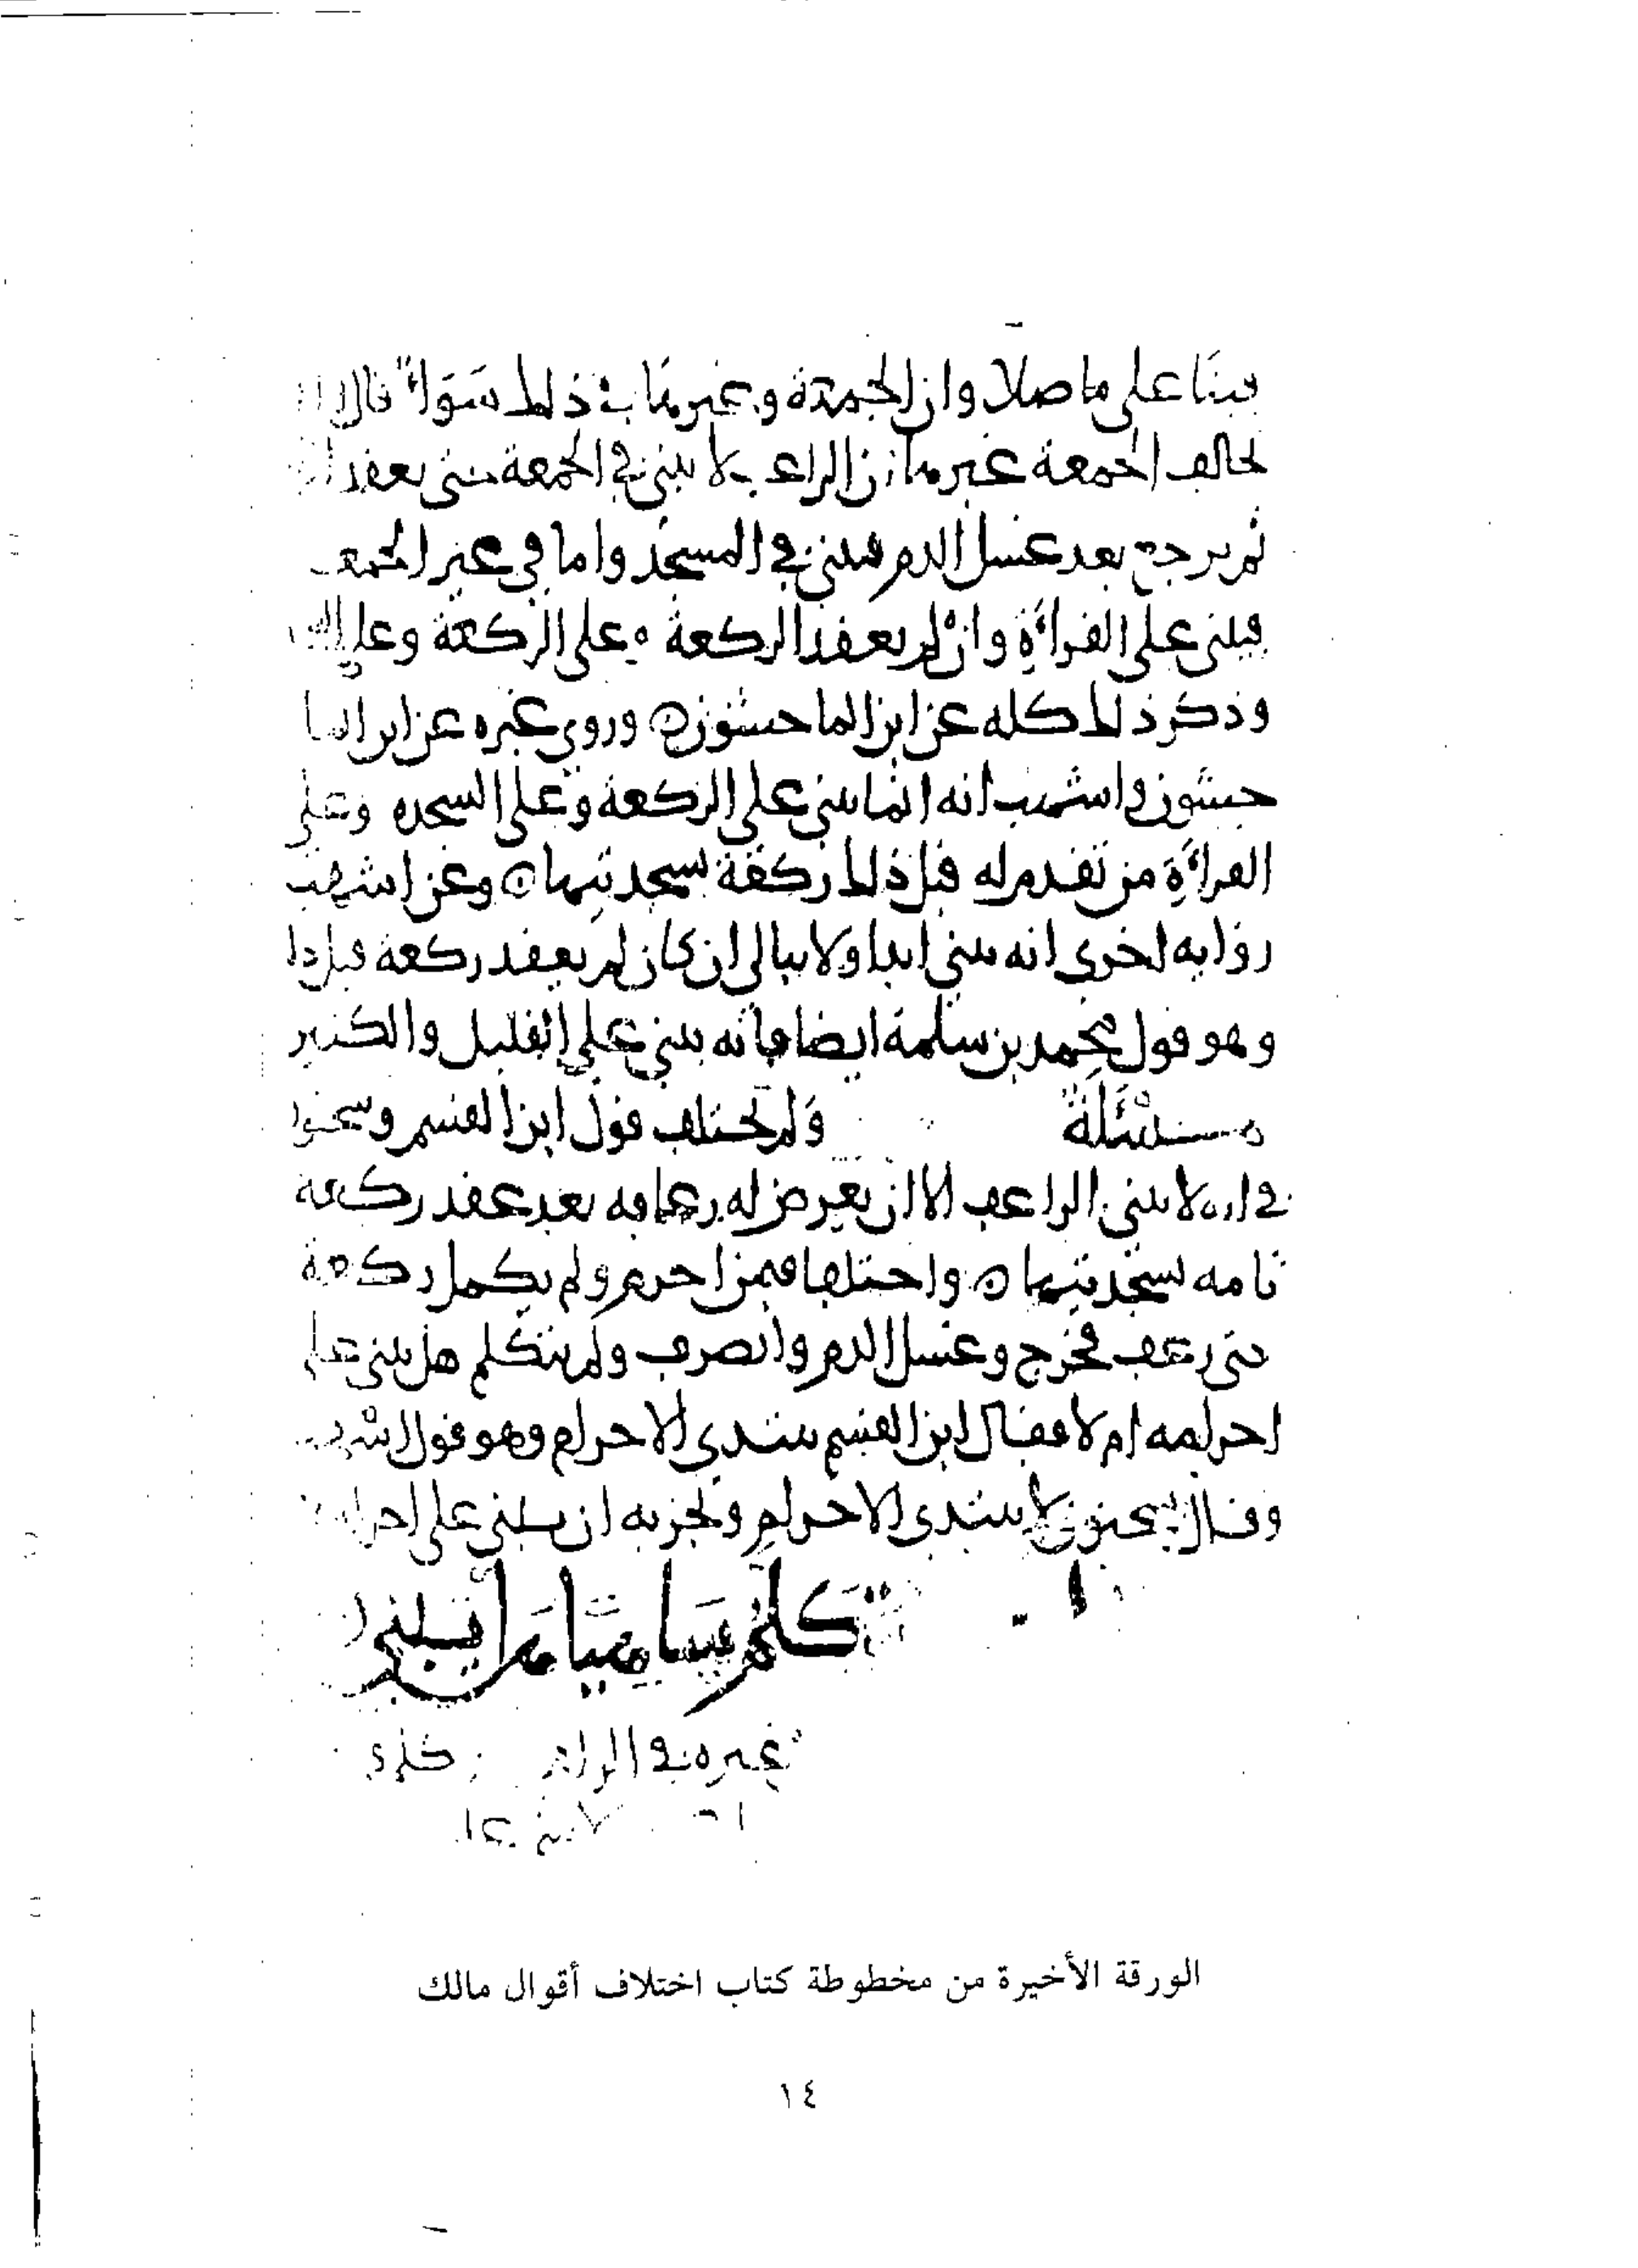 فبنا على ما صلا وان الجمعة وغيرها في ذلك سَوَاءٌ قال
تخالف الجمعة غيرها ان الراعف لا يبنى في الجمعة حتى يعقد
ثم يرجع بعد غسل الدم فيبنى في المسجد واما في غير الجمعة
فيبنى على القراءة وان لم يعقد الركعة وعلى الركعة وعلى
وذكر ذلك كله عن ابن الماجشون وروى غيره عن ابن الما
جشون واشهب انه انما يبنى على الركعة وعلى السجده وعلى
القراءة من تقدم له قبل ذلك ركعة بسجدتيها وعن اشهب
روايه اخرى انه يبنى ابدا ولا يبالى ان كان لم يعقد ركعة قبل ذلك
وهو قول محمد بن سلمة ايضا فانه يبنى على القليل والكثير
مسئلة ولم يختلف قول ابن القسم وسحنون
في انه لا يبنى الراعف الا ان يعرض له رعافه بعد عقد ركعة
تامه بسجدتيها واختلفا فيمن احرم ولم يكمل ركعة
حتى رعف فخرج وغسل الدم وانصرف ولم يتكلم هل يبنى على
احرامه ام لا فقال ابن القسم يبتدى الاحرام وهو قول اشهب
وقال سحنون لا يبتدى الاحرام ويجزيه ان يبنى على احرامه
غيره في
لا يبنى على
الورقة الأخيرة من مخطوطة كتاب اختلاف أقوال مالك
١٤